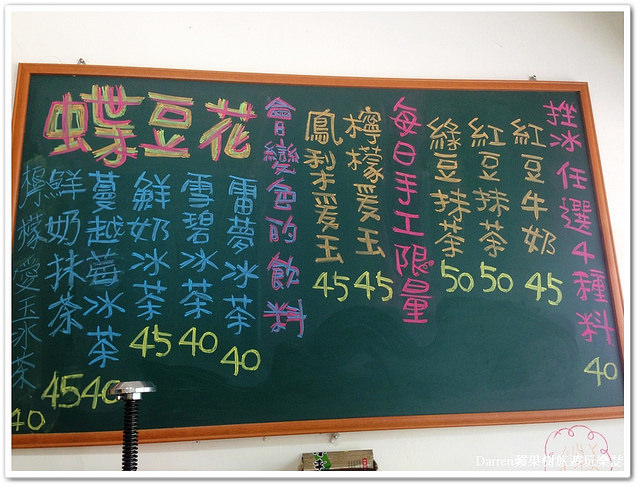 蝶豆花
挫冰任選4種料 40
紅豆牛奶 45
紅豆抹茶 50
綠豆抹茶 50
每日手工限量
檸檬愛玉 45
鳳梨愛玉 45
會變色的飲料
雷夢冰茶 40
雪碧冰茶 40
鮮奶冰茶 45
蔓越莓冰茶 40
鮮奶抹茶 45
檸檬愛玉冰茶 40
Darren蘋果樹旅遊玩樂誌